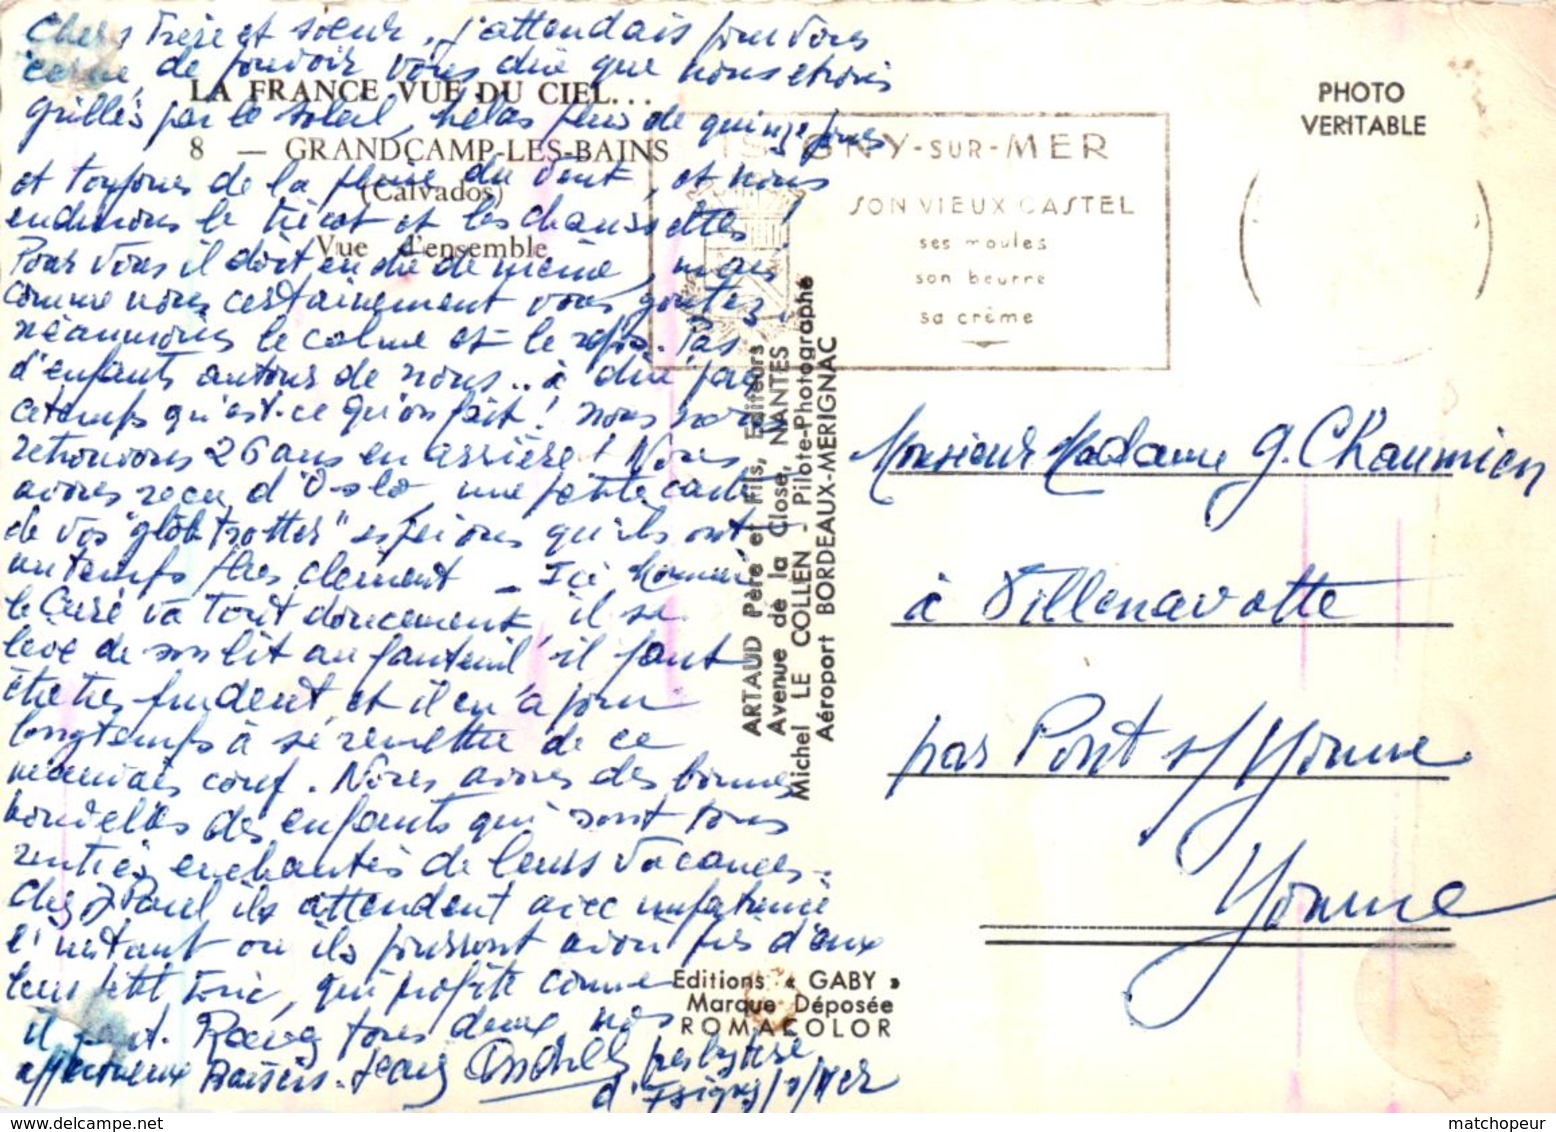 Chers Frère et sœur, j'attendais pour vous
écrire, de pouvoir vous dire que nous étions
grillés par le soleil, hélas plus de quinze jours
et toujours de la pluie du vent, et nous
endurons le tricot et les chaussettes!
Pour vous il doit en être de même, mais
comme nous certainement vous goûtez
néanmoins le calme et le repos. Pas
d'enfants autour de nous.. à dire par
ce temps qu'est-ce qu'on fait! nous nous
retrouvons 26 ans en arrière! Nous
avons reçu d'Oslo, une petite carte
de vos "glob trotter" espérons qu'ils ont
un temps plus clément _ Ici Monsieur
le Curé va tout doucement, il se
lève de son lit au fauteuil il faut
être très prudent, et il en a pour
longtemps à se remettre de ce
mauvais coup. Nous avons des bonnes
nouvelles des enfants qui sont tous
rentrés enchantés de leurs vacances.
Chez J Paul, ils attendent avec impatience
l'instant où ils pourront avoir près d'eux
leur petit, qui profite comme
il faut. Recevez tous deux, nos
affectueux Baisers. Jean Andrée presbytère
d'Isigny s/ Mer
LA FRANCE VUE DU CIEL...
8 — GRANDCAMP-LES-BAINS
(Calvados)
Vue d'ensemble
ARTAUD Père et Fils, Editeurs
Avenue de la Close, NANTES
Michel LE COLLEN - Pilote-Photographe
Aéroport BORDEAUX-MERIGNAC
Editions « GABY »
Marque Déposée
ROMACOLOR
PHOTO
VERITABLE
ISIGNY-SUR-MER
SON VIEUX CASTEL
ses moules
son beurre
sa crème
Monsieur Madame G. Chaumien
à Villenavotte
par Pont s/ Yonne
Yonne
matchopeur